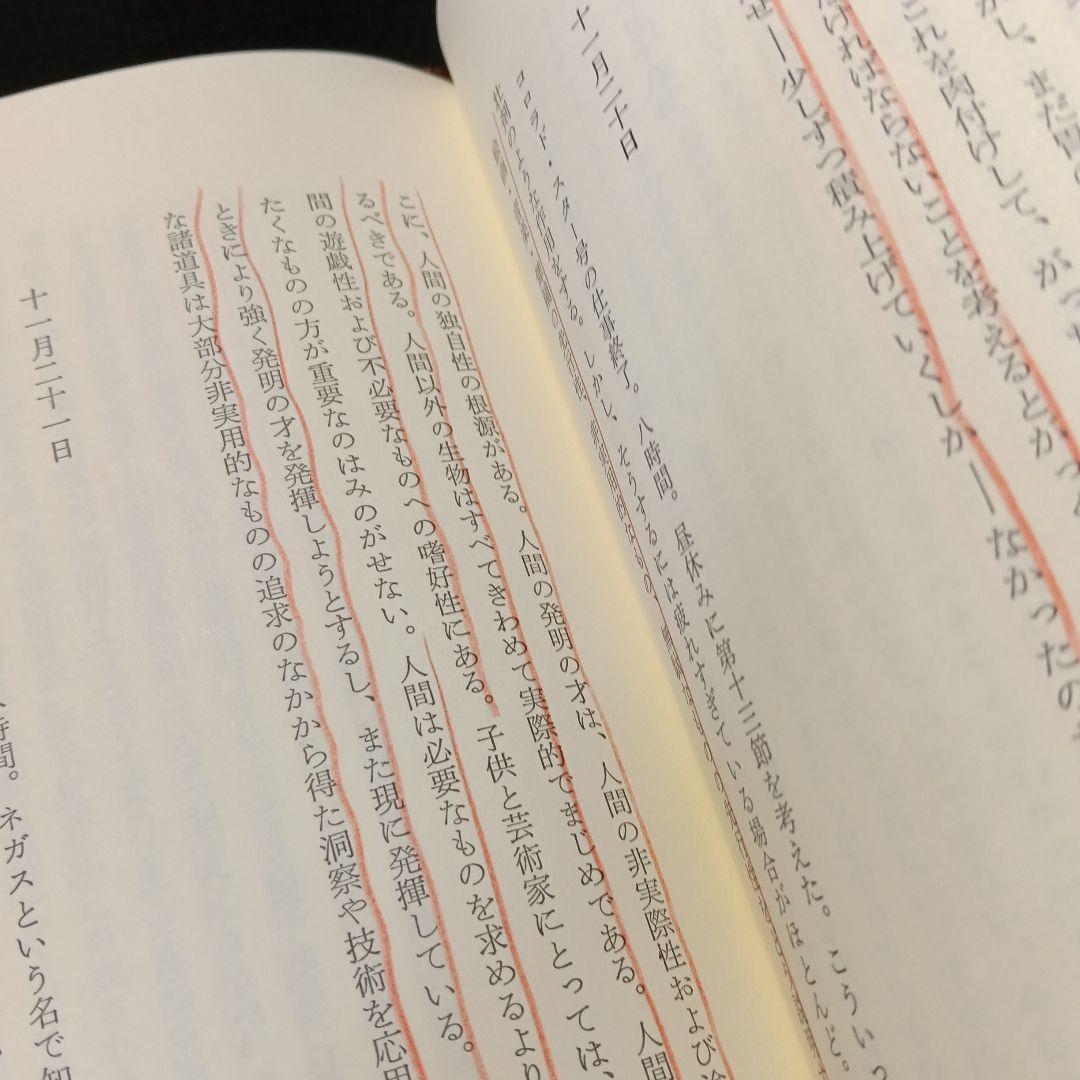 かし、まだ
これを肉付けして、が
なければならないことを考えるとがっく
少しずつ積み上げていくしか――なかったの
十一月二十日
コロラド・スター号の仕事終了。八時間。昼休みに第十三節を考えた。こういう
しかし、そうするには疲れすぎている場合がほとんど。
こに、人間の独自性の根源がある。人間の発明の才は、人間の非実際性および
るべきである。人間以外の生物はすべてきわめて実際的でまじめである。人間
間の遊戯性および不必要なものへの嗜好性にある。子供と芸術家にとっては、
たくなものの方が重要なのはみのがせない。人間は必要なものを求めるより
ときにより強く発明の才を発揮しようとするし、また現に発揮している。
な諸道具は大部分非実用的なものの追求のなかから得た洞察や技術を応用
十一月二十一日
時間。ネガスという名で知